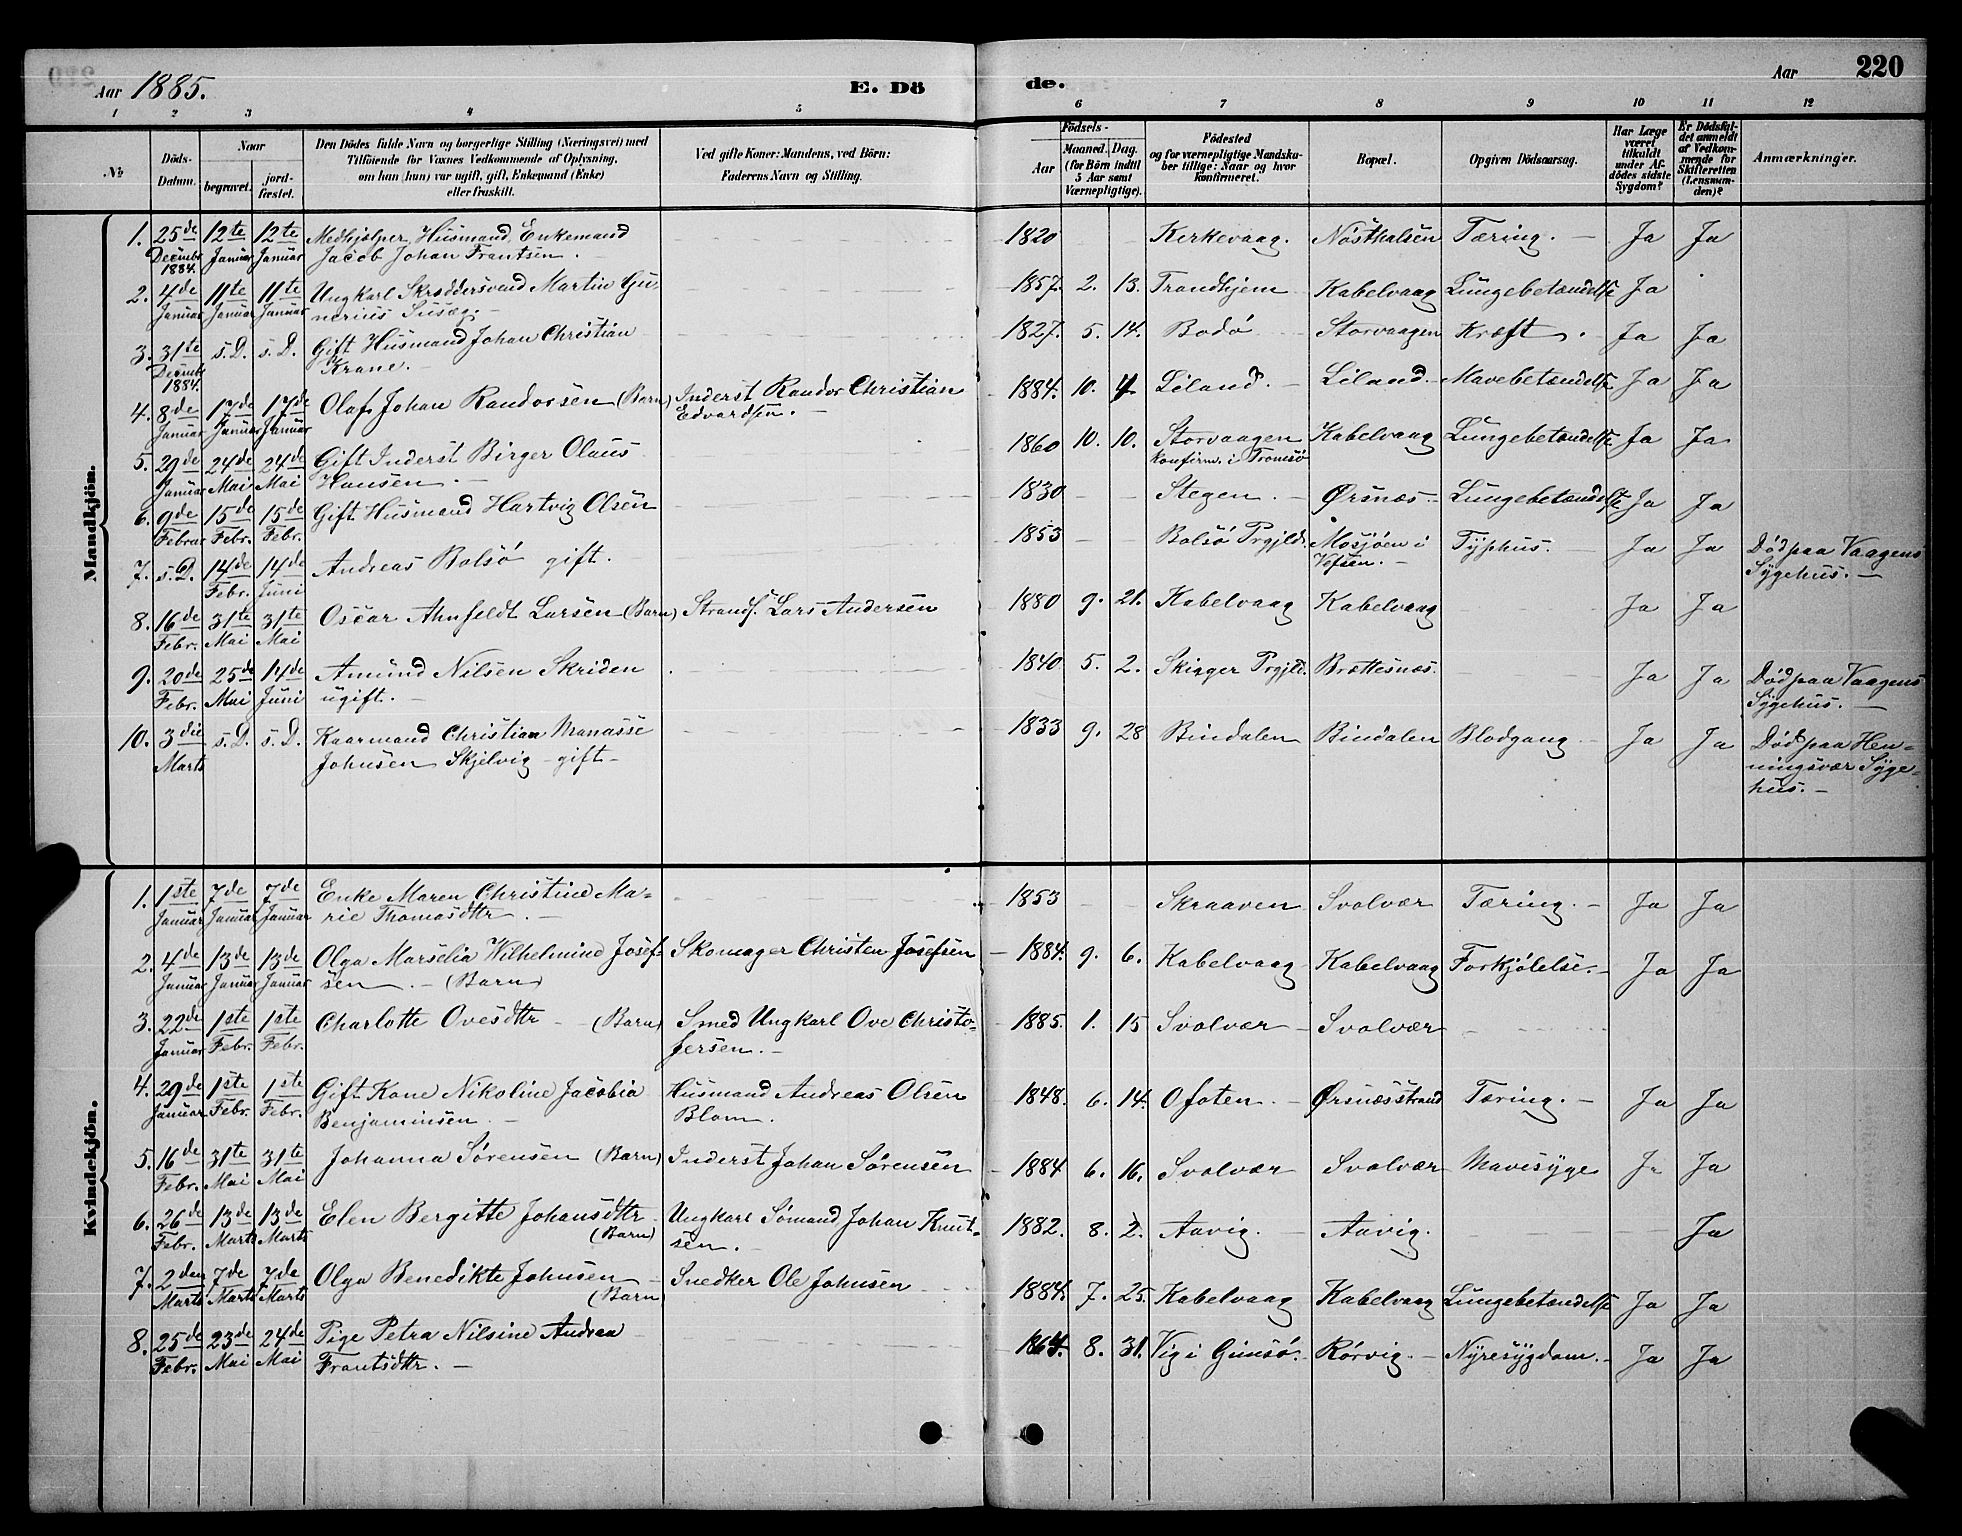 Aar 1885. E. Dö de. Aar 220
1 2 3 4 5 6 7 8 9 10 11 12
№
Döds-
Datum.
Naar
begravet.
jord-
fæstet.
Den Dödes fulde Navn og borgerlige Stilling (Næringsvei) med
Tilföiende for Voxnes Vedkommende af Oplysning,
om han (hun) var ugift, gift, Enkemand (Enke)
eller fraskilt.
Ved gifte Koner: Mandens, ved Börn:
Faderens Navn og Stilling.
Aar
Födsels-
Maaned. Dag.
(for Börn indtil
5 Aar samt
Værnepligtige).
Födested
og for værnepligtige Mandska-
ber tillige: Naar og hvor
konfirmeret.
Bopæl.
Opgiven Dödsaarsag.
Har Læge
været
tilkaldt
under Af-
dödes sidste
Sygdom?
Er Dödsfal-
det anmeldt
af Vedkom-
mende for
Skifteretten
(Lensman-
den)?
Anmærkninger.
Mandkjön.
1. 25de 12te 12te Medhjælper, Husmand, Enkemand 1820 Kirkevaag. Nösthalsen Tæring. Ja Ja
Decembr Januar Januar Jacob Johan Frantsen.
1884.
2. 4de 11te 11te Ungkarl Skræddersvend Martin Gu- 1857. 2. 13. Trondhjem Kabelvaag Lungebetændelse Ja
Januar Januar Januar nerius
3. 31te s. D. s. D. Gift Husmand Johan Christian 1827. 5. 14. Bodö Storvaagen Kræft. Ja Ja
Decembr Krane.
1884.
4. 8de 17de 17de Olaf Johan Randorsen (Barn) Inderst Randor Christian 1884. 10. 4. Löland. Löland. Mavebetændelse Ja Ja
Januar Januar Januar Edvardsen.
5. 29de 24de 24de Gift Inderst Birger Olaus 1860 10. 10. Storvaagen Kabelvaag Lungebetændelse Ja Ja
Januar Mai Mai Hansen. konfirm. i Tromsö
6. 9de 15de 15de Gift Husmand Hartvig Olsen 1830 Stegen. Ørsnæs. Lungebetændelse Ja Ja
Februar Febr. Febr.
7. s. D. 14de 14de Andreas Bolsö gift. 1853 Bolsö Prgjld. Mosjöen i Typhus. Ja Ja Död paa Vaagens
Febr. Juni Vefsen. Sygehus.
8. 16de 31te 31te Oscar Ahnfeldt Larsen (Barn) Strands. Lars Andersen 1880 9. 21. Kabelvaag Kabelvaag Ja Ja
Febr. Mai Mai
9. 20de 25de 14de Amund Nilsen Skriden 1840 5. 2. Prgjld. Brettesnæs. Ja Ja Död paa Vaagens
Febr. Mai Juni ugift. Sygehus.
10. 3die s. D. s. D. Kaarmand Christian Manasse 1833 9. 28 Bindalen Bindalen Blodgang Ja Ja Död paa Hen-
Marts Johnsen Skjelvig gift ningsvær Syge-
hus.
Kvindekjön.
1. 1ste 7de 7de Enke Maren Christine Ma- 1853 Skraaven Svolvær Tæring. Ja Ja
Januar Januar Januar rie Thomasdtr.
2. 4de 13de 13de Olga Marselia Wilhelmine Josef- Skomager Christen Josefsen 1884. 9. 6. Kabelvaag Kabelvaag Forkjölelse. Ja Ja
Januar Januar Januar sen. (Barn)
3. 22de 1ste 1ste Charlotte Ovesdtr (Barn) Smed Ungkarl Ove Christo- 1885. 1. 15 Svolvær Svolvær
Januar Febr. Febr. fersen.
4. 29de 1ste 1ste Gift Kone Nikoline Jacobia Husmand Andreas Olsen 1848. 6. 14. Ofoten. Ørsnæsstrand Tæring. Ja Ja
Januar Febr. Febr. Benjaminsen Blom.
5. 16de 31te 31te Johanna Sörensen (Barn) Inderst Johan Sörensen 1884 6. 16. Svolvær Svolvær Mavesyge Ja Ja
Febr. Mai Mai
6. 26de 13de 13de Elen Bergitte Johansdtr Ungkarl Sömand Johan Knut- 1882. 8. 2. Aavig. Aavig. Ja
Febr. Marts Marts (Barn) sen.
7. 2den 7de 7de Olga Benedikte Johnsen Snedker Ole Johnsen 1884. 7. 25. Kabelvaag Kabelvaag Lungebetændelse Ja Ja
Marts Marts Marts (Barn)
8. 25de 23de 24de Pige Petra Nilsine Andrea 1864. 8. 31. Vig i Gimsö. Rörvig. Nyresygdom. Ja Ja
Febr. Mai Mai Frantsdtr.